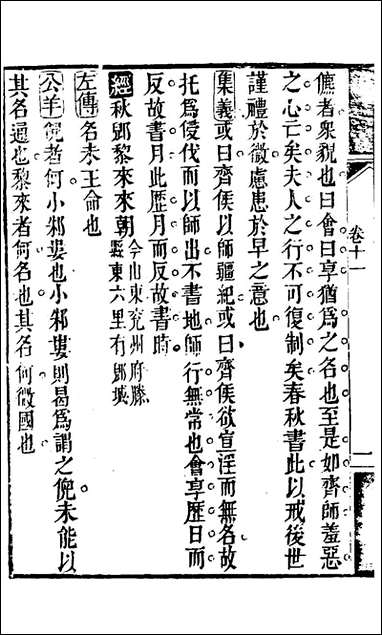 卷十一
一
儦者衆貌也曰會曰享猶為之名也至是如齊師羞惡
之心亡矣夫人之行不可復制矣春秋書此以戒後世
謹禮於微慮患於早之意也
集義或曰齊侯以師疆紀或曰齊侯欲宣淫而無名故
托為侵伐而以師出不書地師行無常也會享歷日而
反故書月此歷月而反故書時
經秋郳黎來來朝今山東兖州府滕縣東六里有郳城
左傳名未王命也
公羊倪者何小邾婁也小邾婁則曷為謂之倪未能以
其名通也黎來者何名也其名何微國也